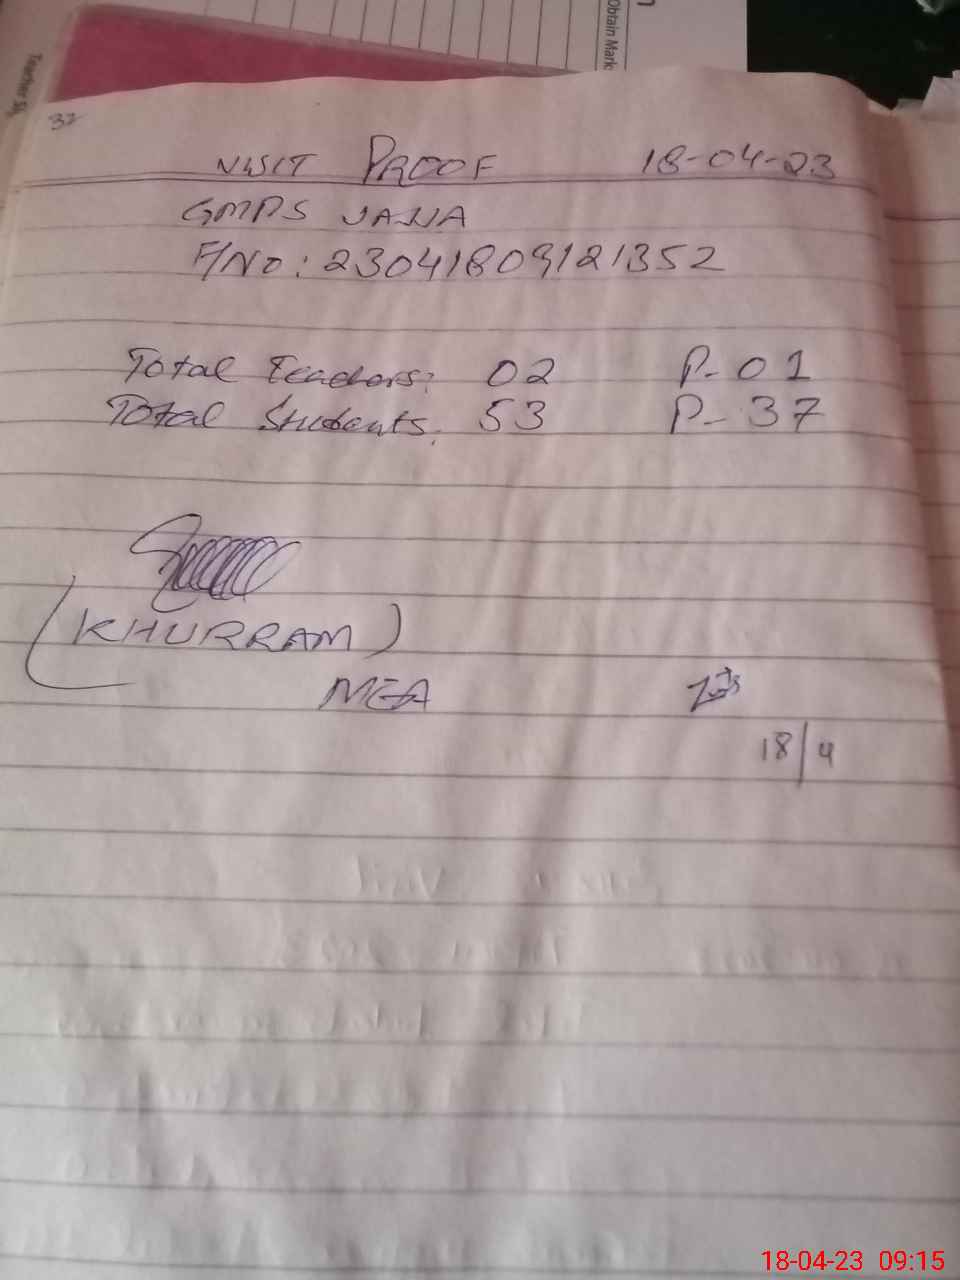 Obtain Mark
Teacher
32
VISIT PROOF 18-04-23
GMPS JAJJA
F/NO: 23041809121352
Total Teachers: 02 P- 01
Total Students: 53 P- 37
(KHURRAM)
MEA
18/4
18-04-23 09:15